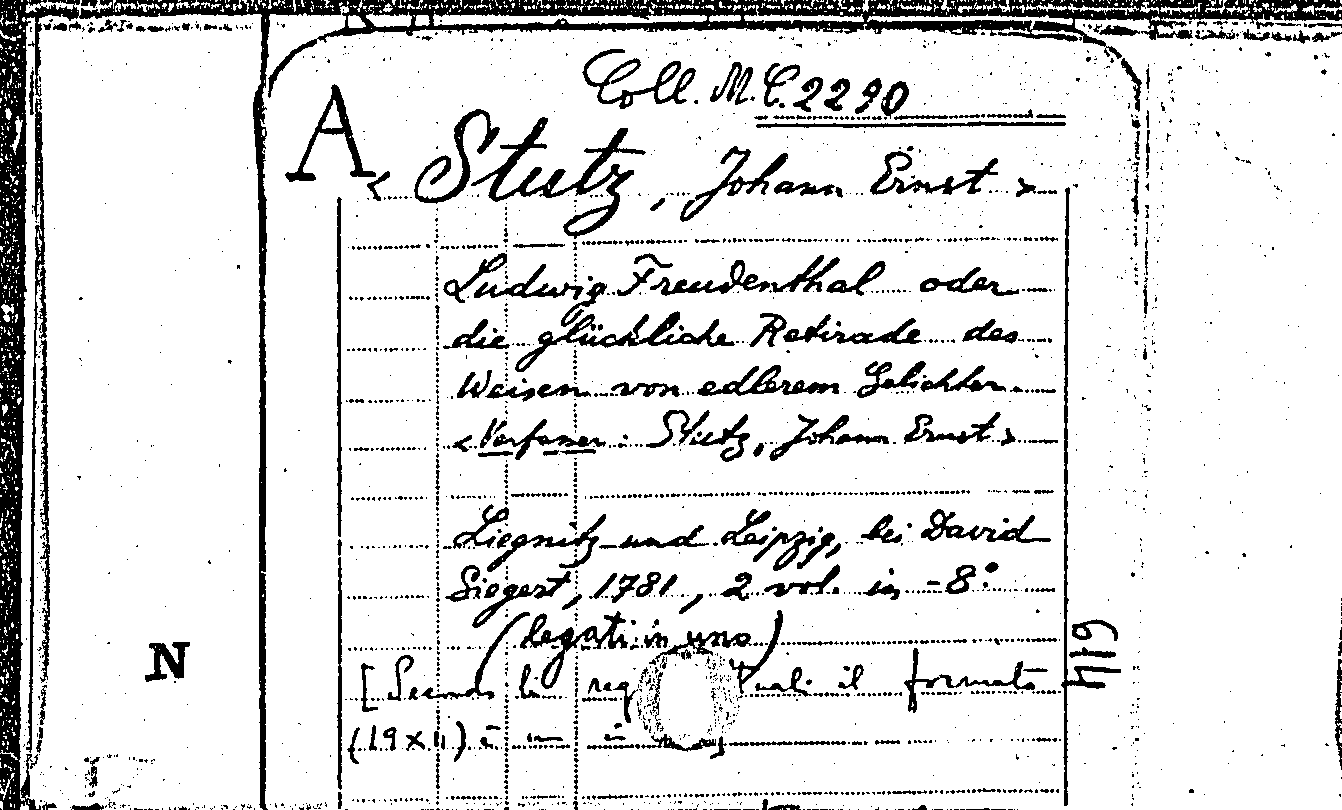 Coll. M.C. 2290
A
< Stutz, Johann Ernst >
Ludwig Freudenthal oder
die glückliche Retirade des
Weisen von edlerem Gelichter.
< Verfasser: Stutz, Johann Ernst >
Liegnitz und Leipzig, bei David
Siegert, 1781, 2 vol. in-8°
(legati in uno)
[ il formato
(19 x 11) è un
N